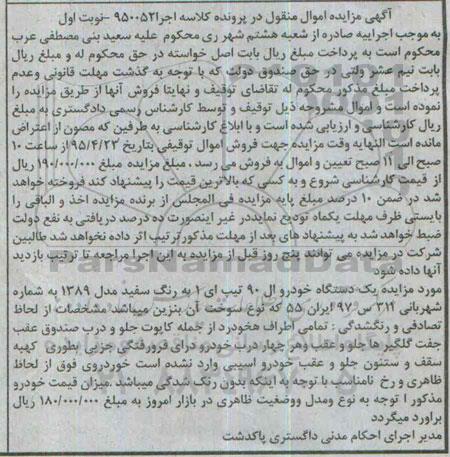 آگهی مزایده اموال منقول در پرونده کلاسه اجرا۹۵۰۰۵۲ -نوبت اول
به موجب اجراییه صادره از شعبه هشتم شهر ری محکوم علیه سعید بنی مصطفی عرب
محکوم است به پرداخت مبلغ ریال بابت اصل خواسته در حق محکوم له و مبلغ ریال
بابت نیم عشر دولتی در حق صندوق دولت که با توجه به گذشت مهلت قانونی وعدم
پرداخت مبلغ مذکور محکوم له تقاضای توقیف و نهایتا فروش آنها از طریق مزایده را
نموده است و اموال مشروحه ذیل توقیف و توسط کارشناس رسمی دادگستری به مبلغ
ریال کارشناسی و ارزیابی شده است و با ابلاغ کارشناسی به طرفین که مصون از اعتراض
مانده است النهایه وقت مزایده جهت فروش اموال توقیفی بتاریخ ۹۵/۴/۲۲ از ساعت ۱۰
صبح الی ۱۱ صبح تعیین و اموال به فروش می رسد . مبلغ مزایده مبلغ ۱۹۰/۰۰۰/۰۰۰ ریال
از قیمت کارشناسی شروع و به کسی که بالاترین قیمت را پیشنهاد کند فروخته خواهد
شد در ضمن ۱۰ درصد مبلغ پایه مزایده فی المجلس از برنده مزایده اخذ و الباقی را
بایستی ظرف مهلت یکماه تودیع نمایددر غیر اینصورت ده درصد دریافتی به نفع دولت
ضبط خواهد شد به پیشنهاد های بعد از مهلت مذکور ترتیب اثر داده نخواهد شد طالبین
شرکت در مزایده می توانند پنج روز قبل از مزایده به این اجرا مراجعه تا ترتیب بازدید
آنها داده شود
مورد مزایده یک دستگاه خودرو ال ۹۰ تیپ ای ۱ به رنگ سفید مدل ۱۳۸۹ به شماره
شهربانی ۳۱۴ س ۹۷ ایران ۵۵ که نوع سوخت آن بنزین میباشد مشخصات از لحاظ
تصادفی و رنگشدگی : تمامی اطراف هخودرد از جمله کاپوت جلو و درب صندوق عقب
جفت گلگیر ها جلو و عقب وهر چهار درب خودرو درای فرورفتگی جزیی بطوری کهبه
سقف و ستنون جلو و عقب خودرو اسیبی وارد نشده است خوردروی فوق از لحاظ
ظاهری و رخ نامناسب با توجه به اینکه بدون رنگ شدگی میباشد .میزان قیمت خودرو
مذکور ا توجه به نوع ومدل ووضعیت ظاهری در بازار امروز به مبلغ ۱۸۰/۰۰۰/۰۰۰ ریال
براورد میگردد
مدیر اجرای احکام مدنی داگستری پاکدشت
ParsNamadData